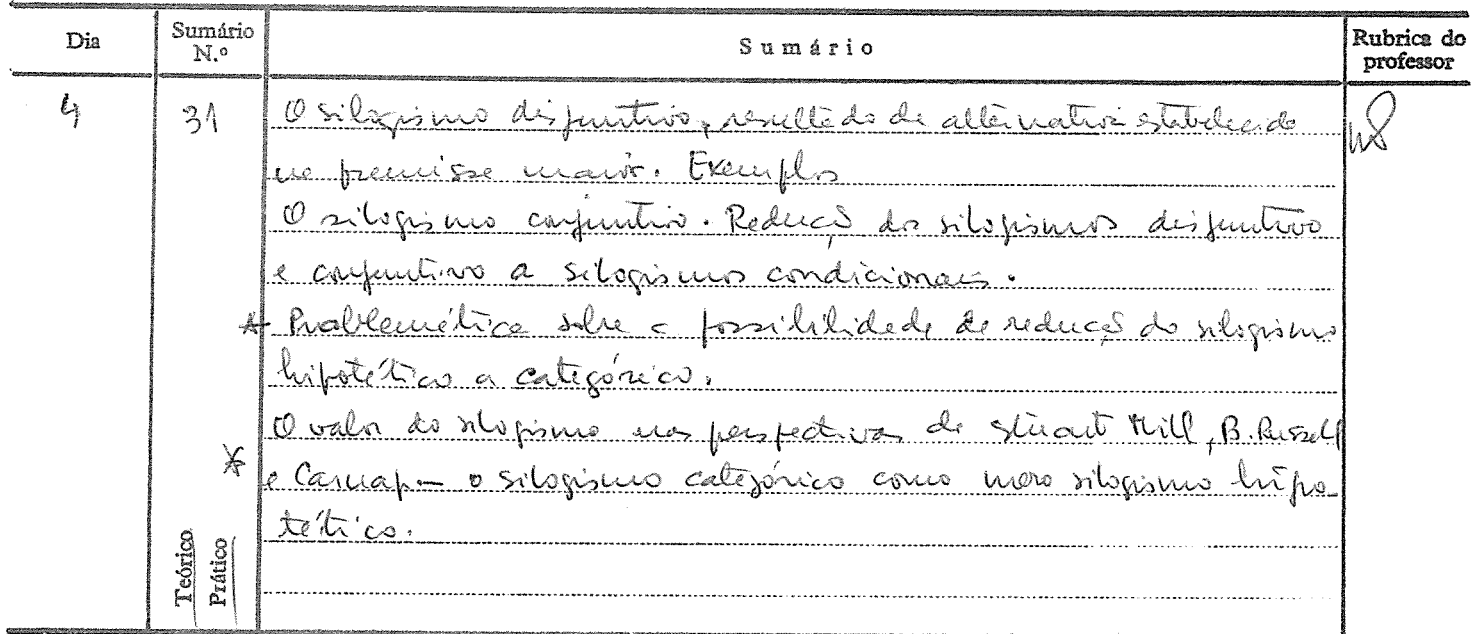 Dia
Sumário N.º
Sumário
Rubrica do professor
4
31
O silogismo disjuntivo, resultado de alternativa estabelecida
na premissa maior. Exemplos
O silogismo conjuntivo. Redução dos silogismos disjuntivo
e conjuntivo a silogismos condicionais.
* Problemática sobre a possibilidade de redução do silogismo
hipotético a categórico.
O valor do silogismo nas perspectivas de Stuart Mill, B. Russell
* e Carnap – o silogismo categórico como mero silogismo hipo-
tético.
Teórico
Prático